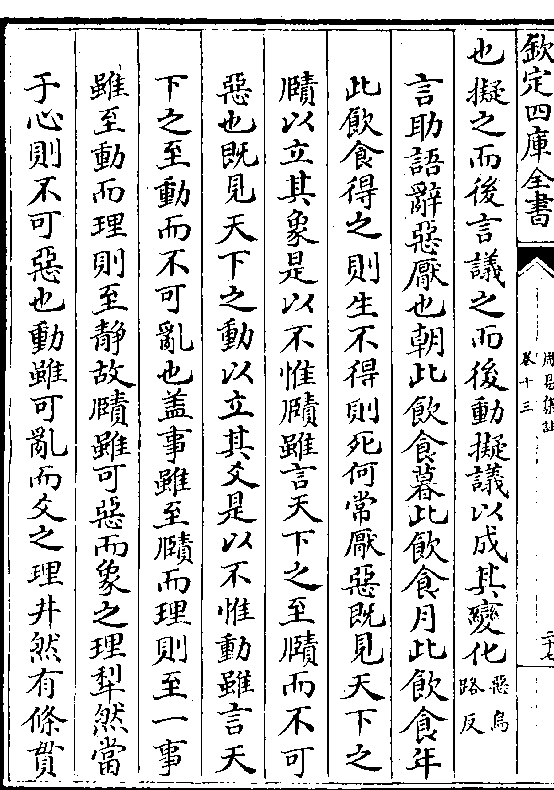 欽定四庫全書
周易集註
卷十三
二十七
也擬之而後言議之而後動擬議以成其變化惡烏路反
言助語辭惡厭也朝此飲食暮此飲食月此飲食年
此飲食得之則生不得則死何常厭惡既見天下之
賾以立其象是以不惟賾雖言天下之至賾而不可
惡也既見天下之動以立其爻是以不惟動雖言天
下之至動而不可亂也蓋事雖至賾而理則至一事
雖至動而理則至靜故賾雖可惡而象之理犁然當
于心則不可惡也動雖可亂而爻之理井然有條貫